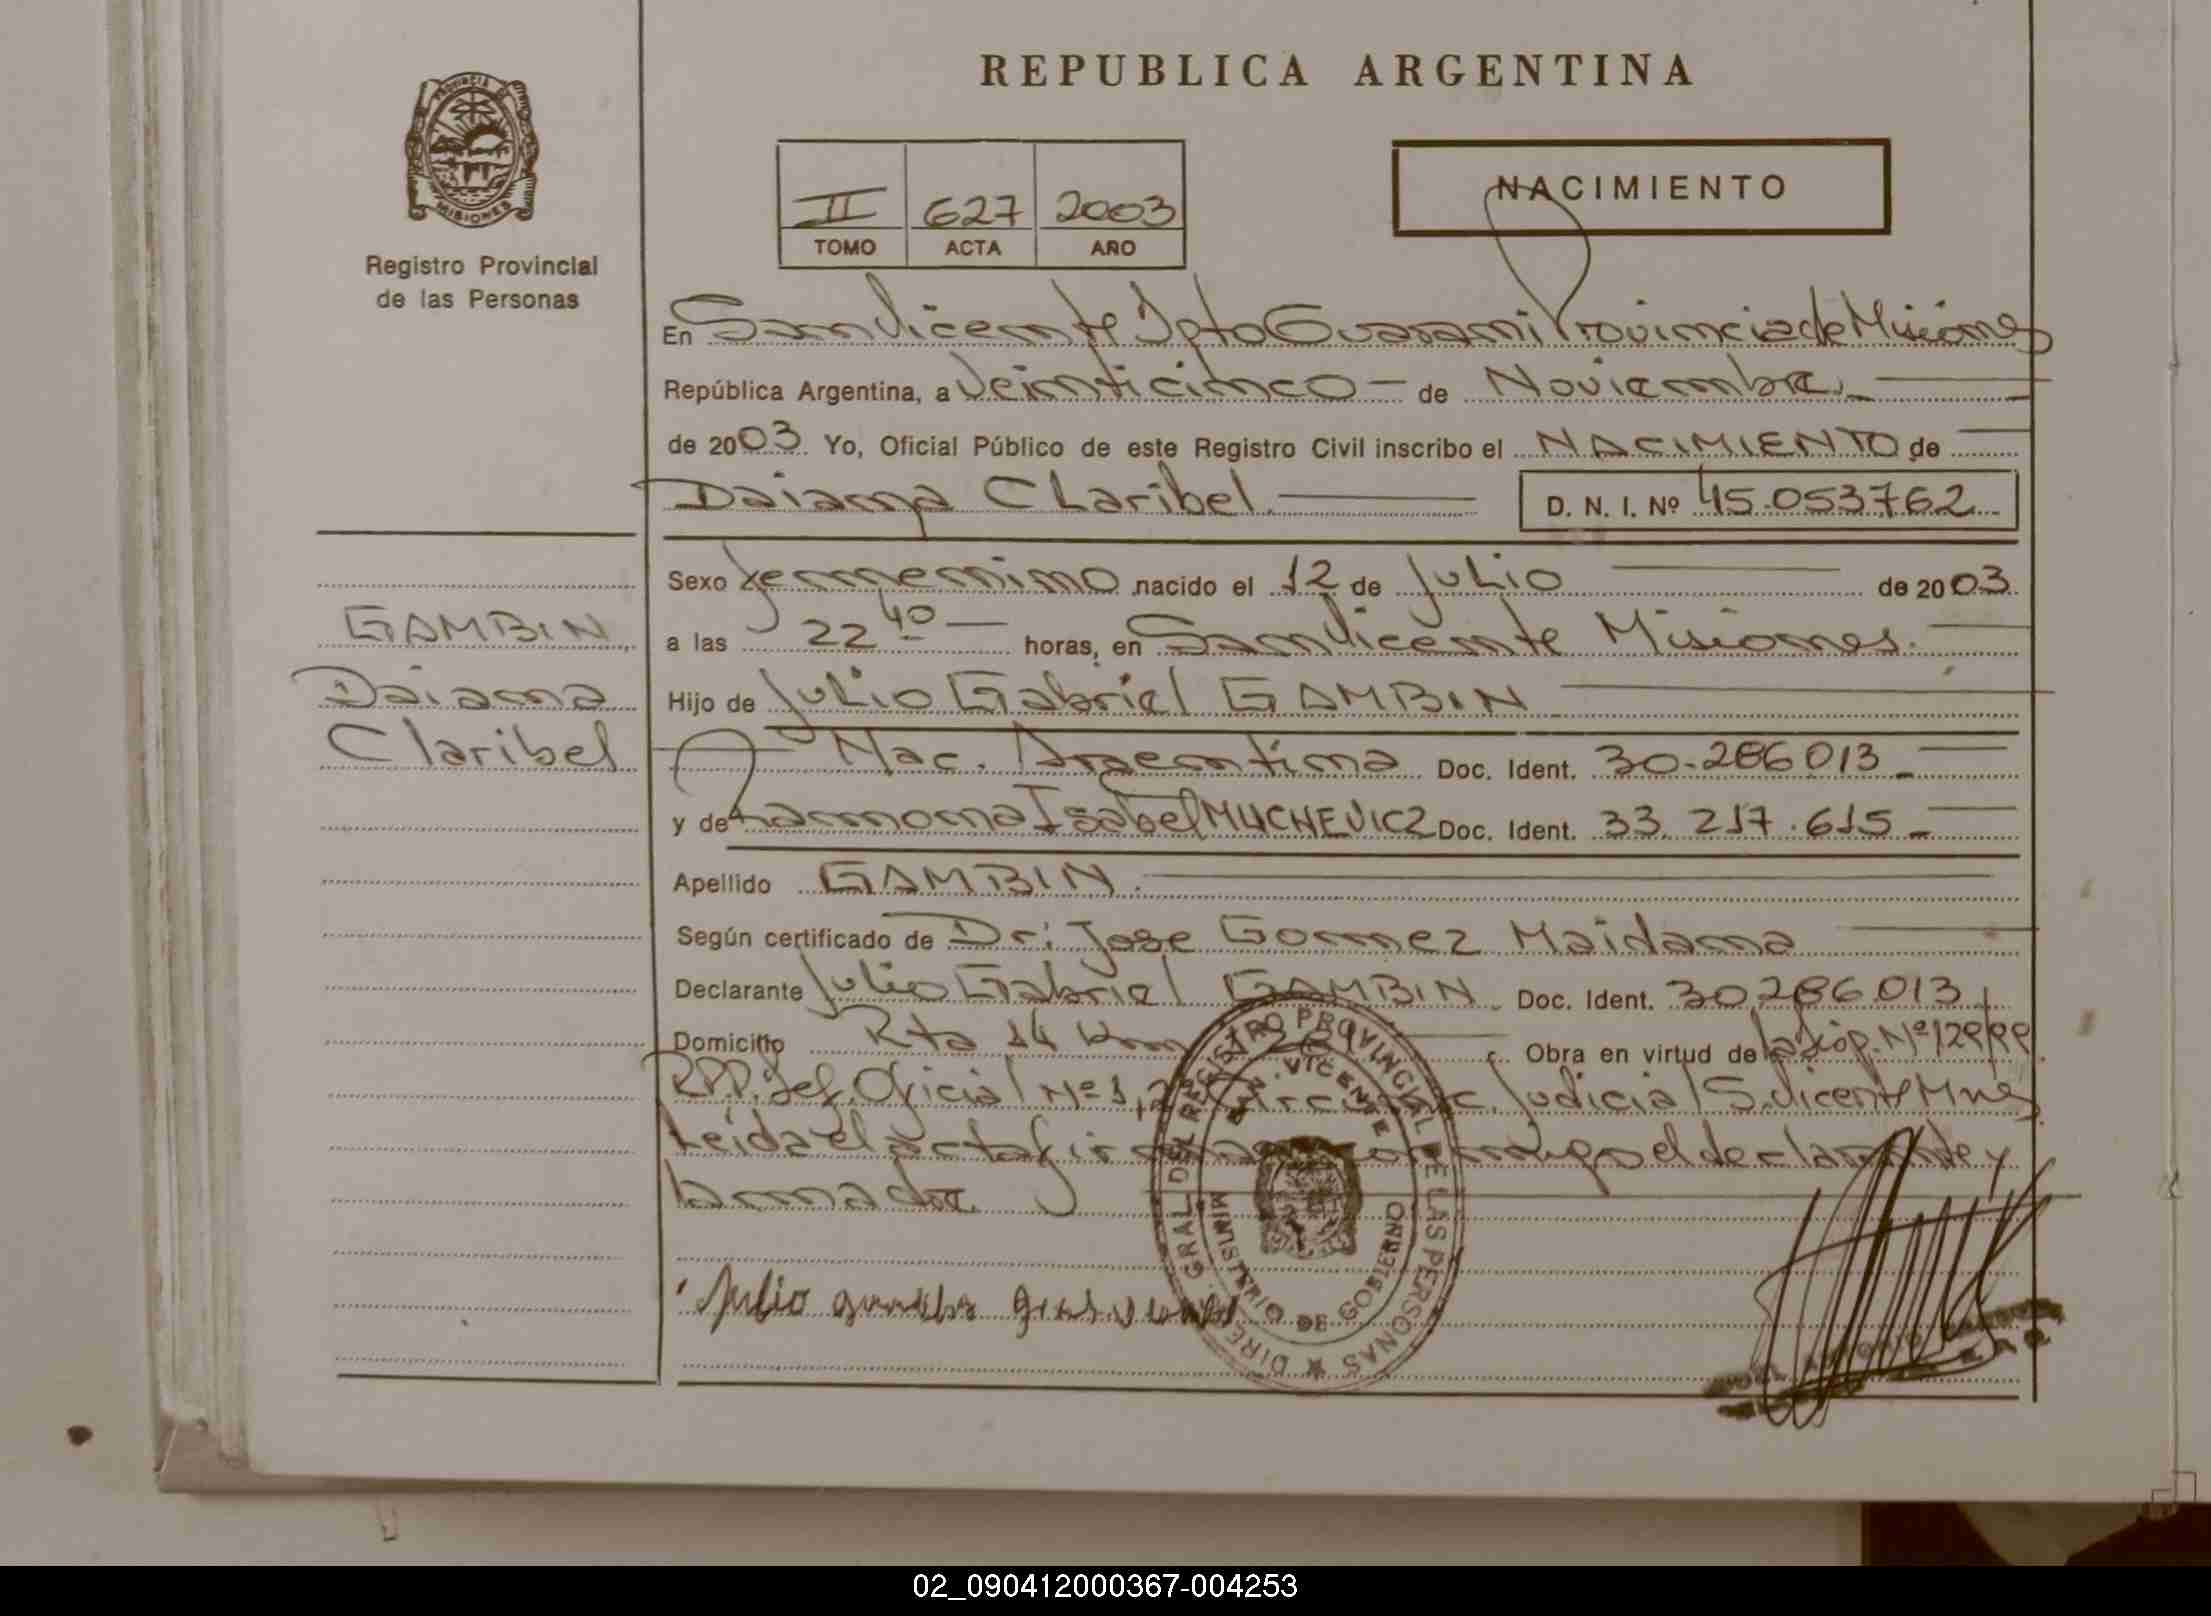 REPUBLICA ARGENTINA
PROVINCIA DE
MISIONES
Registro Provincial
de las Personas
II 627 2003
TOMO ACTA AÑO
NACIMIENTO
En San Vicente Dpto Guarani Provincia de Misiones
República Argentina, a Veinticinco - de Noviembre.-
de 2003 Yo, Oficial Público de este Registro Civil inscribo el NACIMIENTO de
Daiana Claribel
D. N. I. Nº 45.053762
Sexo femenino nacido el 12 de Julio de 2003
a las 22 40 horas, en San Vicente Misiones.
GAMBIN
Daiana
Claribel
Hijo de Julio Gabriel GAMBIN
Nac. Argentina Doc. Ident. 30.286013
y de Ramona Isabel MUCHEVICZ Doc. Ident. 33.217.615
Apellido GAMBIN.
Según certificado de Dr: Jose Gomez Maidana
Declarante Julio Gabriel GAMBIN Doc. Ident. 30286013
Domicilio Rta 14 Km Obra en virtud de la Disp. Nº 129/99
R.P.P. Del. Oficial Nº 1, 2ª Circunsc. Judicial S. Vicente Mnes
Leida el acta firma conmigo el declarante y
la madre
Julio
DIRE. GRAL DEL REGISTRO PROVINCIAL DE LAS PERSONAS
VICENTE
MINISTERIO DE GOBIERNO
02_090412000367-004253